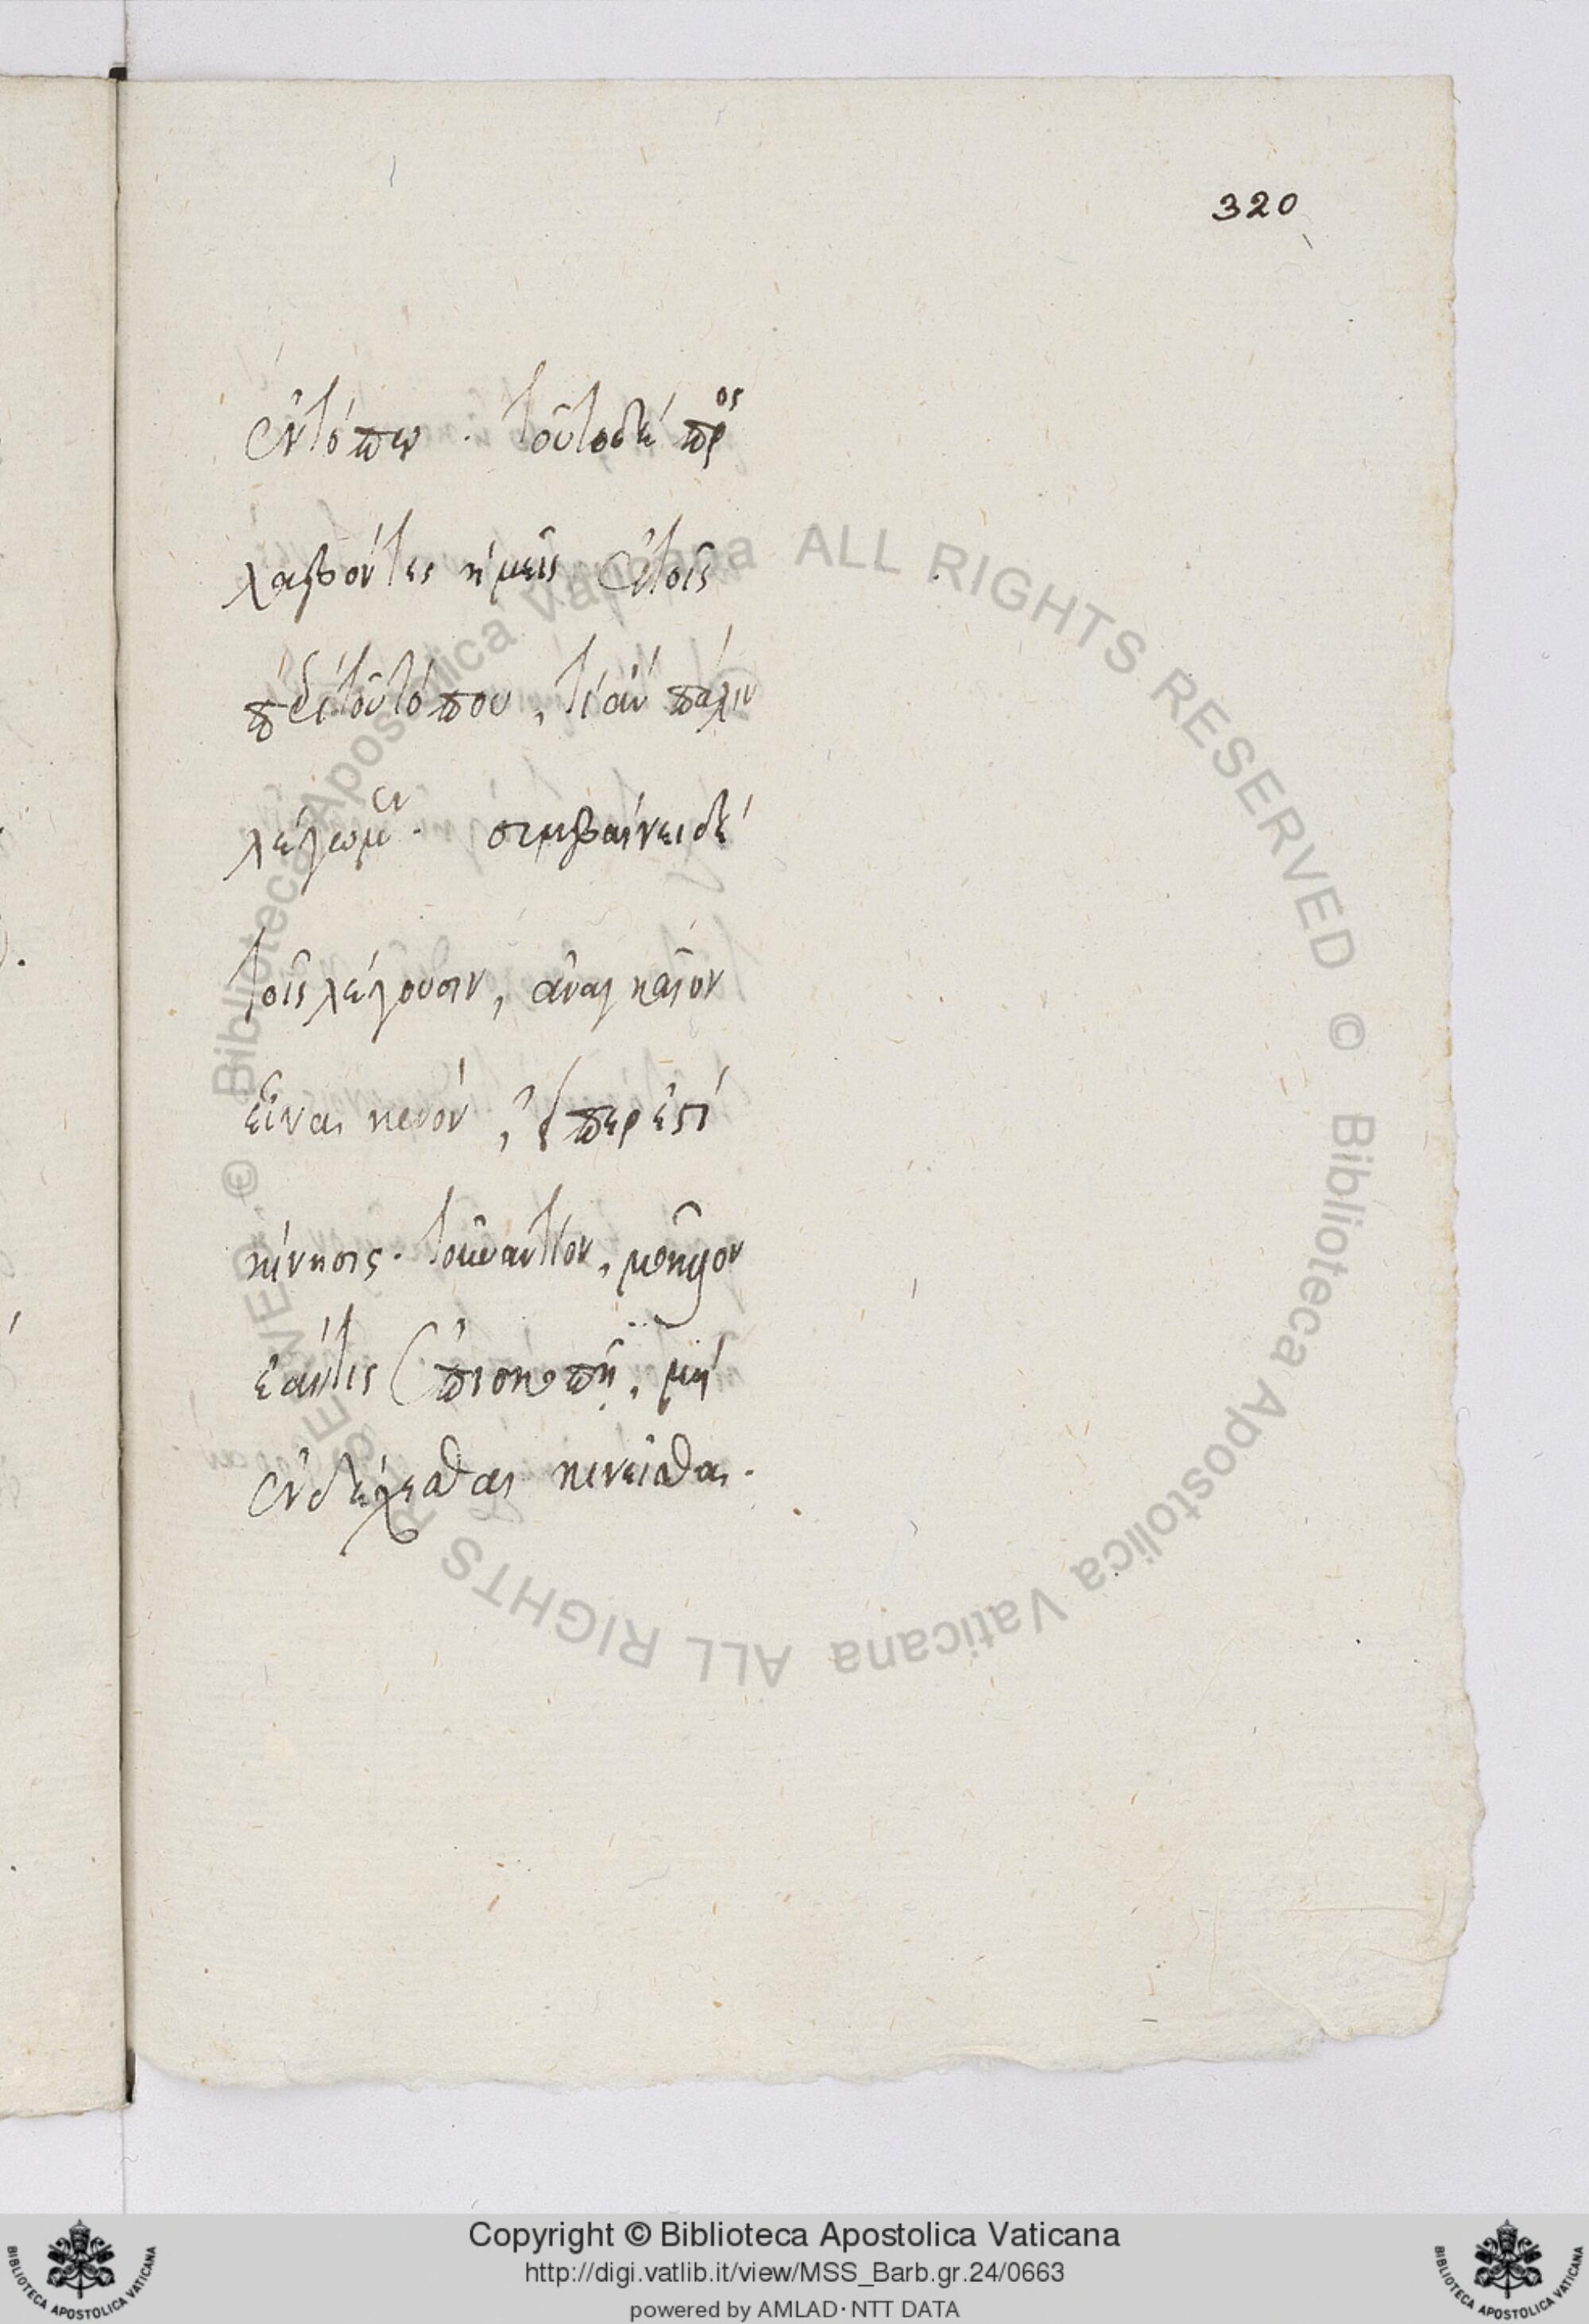 320
ἐν τόπῳ. τοῦτο δὲ πρὸς
λαβόντες ἡμεῖς ἐν τοῖς
περὶ τοῦ τόπου, τί ἂν πάλιν
λέγωμεν. συμβαίνει δὲ
τοῖς λέγουσιν, ἀναγκαῖον
εἶναι κενόν, εἴπερ ἐστὶ
κίνησις. τοὐναντίον, μᾶλλον
ἐάν τις ἐπισκοπῇ, μὴ
ἐνδέχεσθαι κινεῖσθαι.
© Biblioteca Apostolica Vaticana ALL RIGHTS RESERVED
© Biblioteca Apostolica Vaticana ALL RIGHTS RESERVED
Copyright © Biblioteca Apostolica Vaticana
http://digi.vatlib.it/view/MSS_Barb.gr.24/0663
powered by AMLAD·NTT DATA
BIBLIOTECA APOSTOLICA VATICANA
BIBLIOTECA APOSTOLICA VATICANA